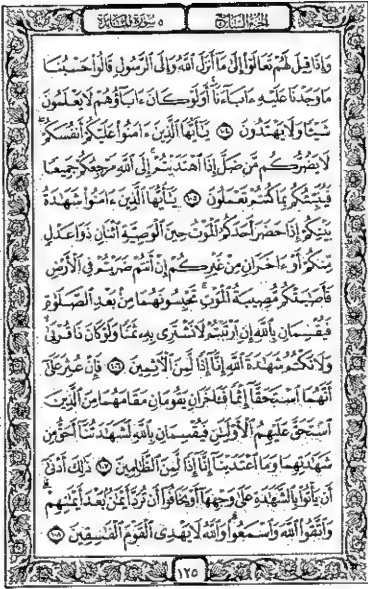 الجزء السابع ٥ سورة المائدة
وَإِذَا قِيلَ لَهُمْ تَعَالَوْا۟ إِلَىٰ مَآ أَنزَلَ ٱللَّهُ وَإِلَى ٱلرَّسُولِ قَالُوا۟ حَسْبُنَا
مَا وَجَدْنَا عَلَيْهِ ءَابَآءَنَآ أَوَلَوْ كَانَ ءَابَآؤُهُمْ لَا يَعْلَمُونَ
شَيْـًٔا وَلَا يَهْتَدُونَ ١٠٤ يَـٰٓأَيُّهَا ٱلَّذِينَ ءَامَنُوا۟ عَلَيْكُمْ أَنفُسَكُمْ
لَا يَضُرُّكُم مَّن ضَلَّ إِذَا ٱهْتَدَيْتُمْ إِلَى ٱللَّهِ مَرْجِعُكُمْ جَمِيعًا
فَيُنَبِّئُكُم بِمَا كُنتُمْ تَعْمَلُونَ ١٠٥ يَـٰٓأَيُّهَا ٱلَّذِينَ ءَامَنُوا۟ شَهَـٰدَةُ
بَيْنِكُمْ إِذَا حَضَرَ أَحَدَكُمُ ٱلْمَوْتُ حِينَ ٱلْوَصِيَّةِ ٱثْنَانِ ذَوَا عَدْلٍ
مِّنكُمْ أَوْ ءَاخَرَانِ مِنْ غَيْرِكُمْ إِنْ أَنتُمْ ضَرَبْتُمْ فِى ٱلْأَرْضِ
فَأَصَـٰبَتْكُم مُّصِيبَةُ ٱلْمَوْتِ تَحْبِسُونَهُمَا مِنۢ بَعْدِ ٱلصَّلَوٰةِ
فَيُقْسِمَانِ بِٱللَّهِ إِنِ ٱرْتَبْتُمْ لَا نَشْتَرِى بِهِۦ ثَمَنًا وَلَوْ كَانَ ذَا قُرْبَىٰ
وَلَا نَكْتُمُ شَهَـٰدَةَ ٱللَّهِ إِنَّآ إِذًا لَّمِنَ ٱلْـَٔاثِمِينَ ١٠٦ فَإِنْ عُثِرَ عَلَىٰٓ
أَنَّهُمَا ٱسْتَحَقَّآ إِثْمًا فَـَٔاخَرَانِ يَقُومَانِ مَقَامَهُمَا مِنَ ٱلَّذِينَ
ٱسْتَحَقَّ عَلَيْهِمُ ٱلْأَوْلَيَـٰنِ فَيُقْسِمَانِ بِٱللَّهِ لَشَهَـٰدَتُنَآ أَحَقُّ مِن
شَهَـٰدَتِهِمَا وَمَا ٱعْتَدَيْنَآ إِنَّآ إِذًا لَّمِنَ ٱلظَّـٰلِمِينَ ١٠٧ ذَٰلِكَ أَدْنَىٰٓ
أَن يَأْتُوا۟ بِٱلشَّهَـٰدَةِ عَلَىٰ وَجْهِهَآ أَوْ يَخَافُوٓا۟ أَن تُرَدَّ أَيْمَـٰنٌۢ بَعْدَ أَيْمَـٰنِهِمْ
وَٱتَّقُوا۟ ٱللَّهَ وَٱسْمَعُوا۟ وَٱللَّهُ لَا يَهْدِى ٱلْقَوْمَ ٱلْفَـٰسِقِينَ ١٠٨
١٢٥